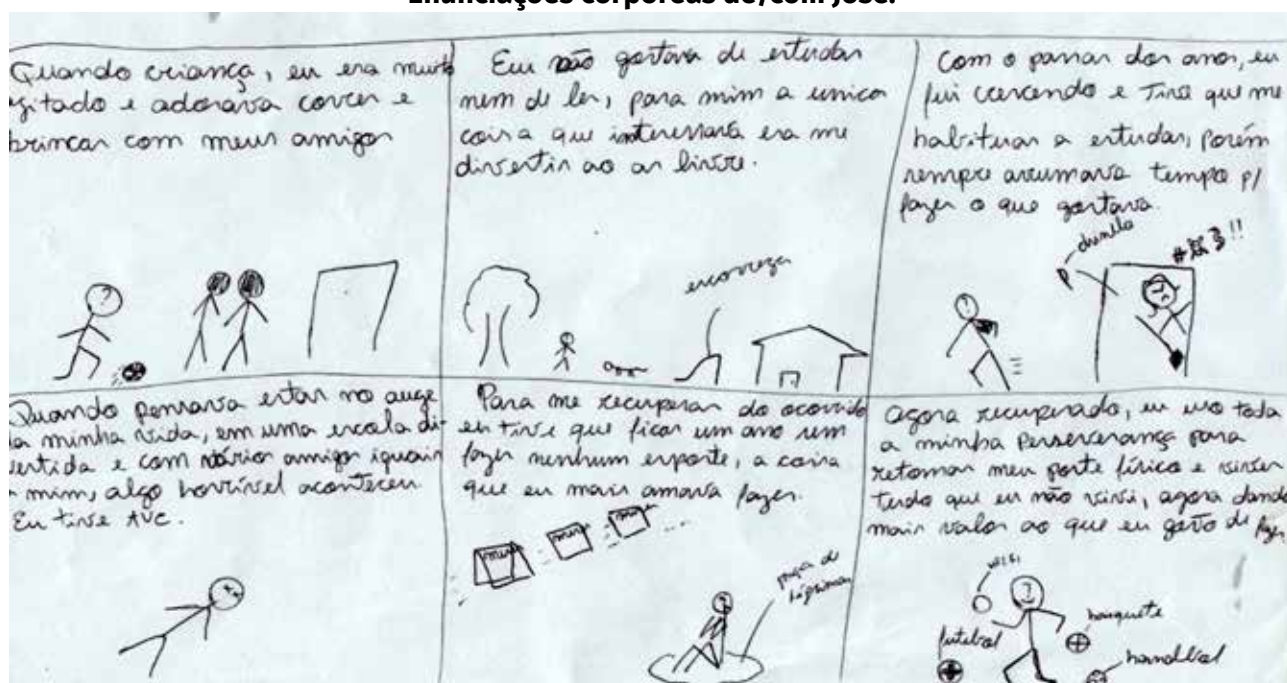 Enunciações corpóreas de/com José.
Quando criança, eu era muito
gitado e adorava correr e
brincar com meus amigos
Eu não gostava de estudar
nem de ler, para mim a unica
coisa que interessava era me
divertir ao ar livre.
escorrega
Com o passar dos anos, eu
fui crescendo e Tive que me
habituar a estudar, porém
sempre arrumava tempo p/
fazer o que gostava.
chinelo
#!!
Quando pensava estar no auge
da minha vida, em uma escola di-
vertida e com vários amigos iguais
a mim, algo horrível aconteceu
Eu tive AVC.
Para me recuperar do ocorrido
eu tive que ficar um ano sem
fazer nenhum esporte, a coisa
que eu mais amava fazer.
poça de
lágrimas
Agora recuperado, eu uso toda
a minha Perseverança para
retomar meu porte físico e viver
tudo que eu não vivi, agora dando
mais valor ao que eu gosto de fazer
futebol
basquete
handbal